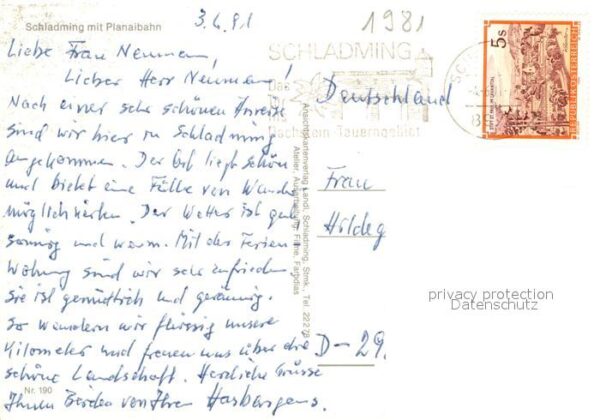 Schladming mit Planaibahn
3.6.91
1981
Liebe Frau Neumann,
Lieber Herr Neumann!
Nach einer sehr schönen Anreise
sind wir hier in Schladming
angekommen. Der Ort liegt schön
und bietet eine Fülle von Wander
möglichkeiten. Der Wetter ist gut
sonnig und warm. Mit der Ferien
Wohnung sind wir sehr zufrieden.
Sie ist gemütlich und geräumig.
So wandern wir fleissig unsere
Kilometer und freuen uns über die
schöne Landschaft. Herzliche Grüsse
Ihnen Beiden von Ihren Hasbargens.
Nr. 190
Ansichtskartenverlag Landl, Schladming, Stmk., Tel. 22278
Atelier, Ausarbeitung, Filme, Farbdias
SCHLADMING
Das
Dachstein-Tauerngebiet
5s
REPUBLIK ÖSTERREICH
Deutschland
Frau
Hildeg
D-29.
privacy protection
Datenschutz